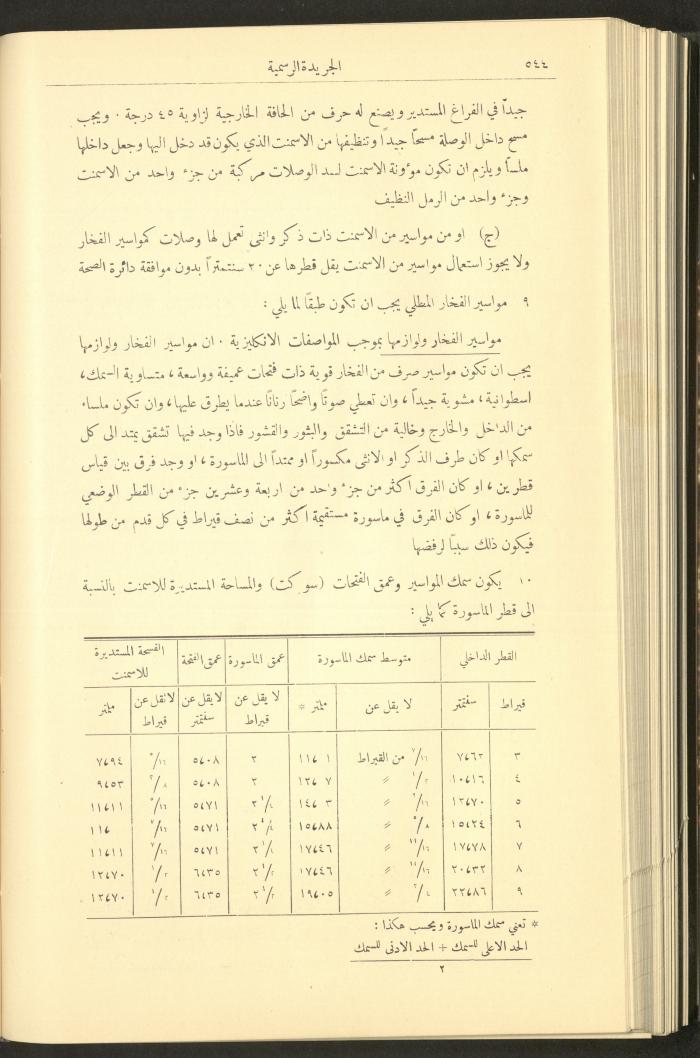 ٥٤٤ الجريدة الرسمية
جيداً في الفراغ المستدير ويصنع له حرف من الحافة الخارجية لزاوية ٤٥ درجة ٠ ويجب
مسح داخل الوصلة مسحاً جيداً وتنظيفها من الاسمنت الذي يكون قد دخل اليها وجعل داخلها
ملساً ويلزم ان تكون موءونة الاسمنت لسد الوصلات مركبة من جزء واحد من الاسمنت
وجزء واحد من الرمل النظيف
(ج) او من مواسير من الاسمنت ذات ذكر وانثى تعمل لها وصلات كمواسير الفخار
ولا يجوز استعمال مواسير من الاسمنت يقل قطرها عن ٢٠ سنتمتراً بدون موافقة دائرة الصحة
٩ مواسير الفخار المطلي يجب ان تكون طبقاً لما يلي :
مواسير الفخار ولوازمها بموجب المواصفات الانكليزية ٠ ان مواسير الفخار ولوازمها
يجب ان تكون مواسير صرف من الفخار قوية ذات فتحات عميقة وواسعة ، متساوية السمك ،
اسطوانية ، مشوية جيداً ، وان تعطي صوتاً واضحاً رناناً عندما يطرق عليها ، وان تكون ملساء
من الداخل والخارج وخالية من التشقق والبثور والقشور فاذا وجد فيها تشقق يمتد الى كل
سمكها او كان طرف الذكر او الانثى مكسوراً او ممتداً الى الماسورة ، او وجد فرق بين قياس
قطرين ، او كان الفرق اكثر من جزء واحد من اربعة وعشرين جزء من القطر الوضعي
للماسورة ، او كان الفرق في ماسورة مستقيمة اكثر من نصف قيراط في كل قدم من طولها
فيكون ذلك سبباً لرفضها
١٠ يكون سمك المواسير وعمق الفتحات (سوكت) والمساحة المستديرة للاسمنت بالنسبة
الى قطر الماسورة كما يلي :
القطر الداخلي متوسط سمك الماسورة عمق الماسورة عمق الفتحة الفسحة المستديرة
للاسمنت
قيراط سنتمتر لا يقل عن ملمتر * لا يقل عن لا يقل عن لا تقل عن ملمتر
قيراط سنتمتر قيراط
٣ ٧،٦٢ ٧/١٦ من القيراط ١١،١ ٢ ٥،٠٨ ٧،٩٤
٤ ١٠،١٦ ١/٢ 〃 ١٢،٧ ٢ ٥،٠٨ ٩،٥٣
٥ ١٢،٧٠ 〃 ١٤،٣ ٢ ١/٤ ٥،٧١ ١١،١١
٦ ١٥،٢٤ ٥/٨ 〃 ١٥،٨٨ ٢ ١/٤ ٥،٧١ ٧/١٦
٧ ١٧،٧٨ ١١/١٦ 〃 ١٧،٤٦ ٢ ١/٤ ٥،٧١ ٧/١٦ ١١،١١
٨ ٢٠،٣٢ ١١/١٦ 〃 ١٧،٤٦ ٢ ١/٢ ٦،٣٥ ١/٢ ١٢،٧٠
٩ ٢٢،٨٦ ٣/٤ 〃 ١٩،٠٥ ٢ ١/٢ ٦،٣٥ ١/٢ ١٢،٧٠
* تعني سمك الماسورة ويحسب هكذا :
الحد الاعلى للسمك + الحد الادنى للسمك
٢